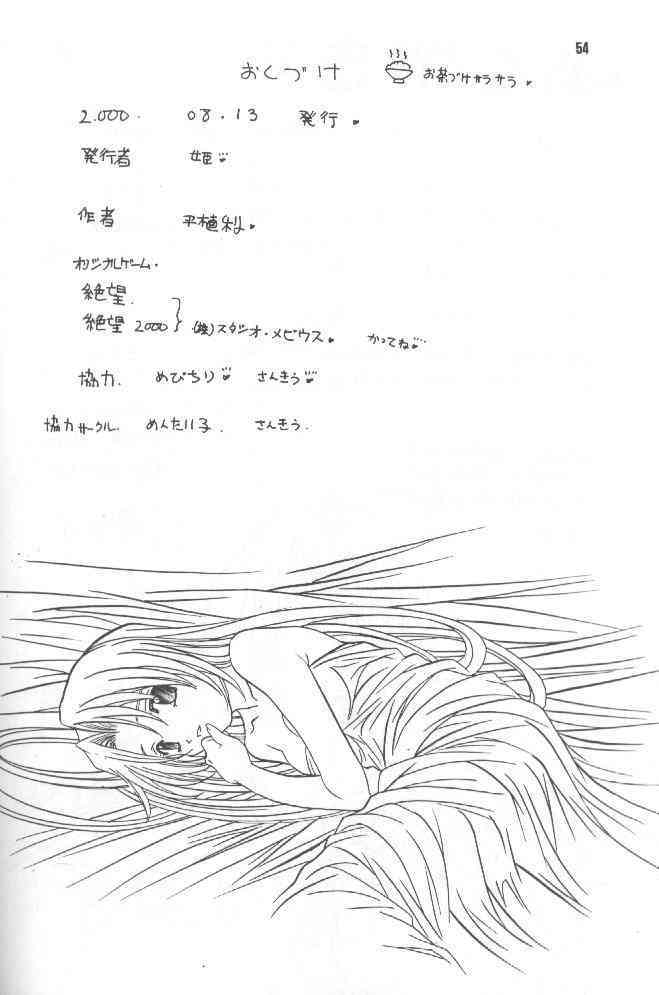 54
おくづけ お茶づけサラサラ
2.000. 08.13 発行
発行者 姫
作者 平植
オリジナルゲーム.
絶望.
絶望 2000 (株)スタジオ・メビウス. かってね
協力. めびちり さんきう
協力サークル. めんたい子. さんきう.